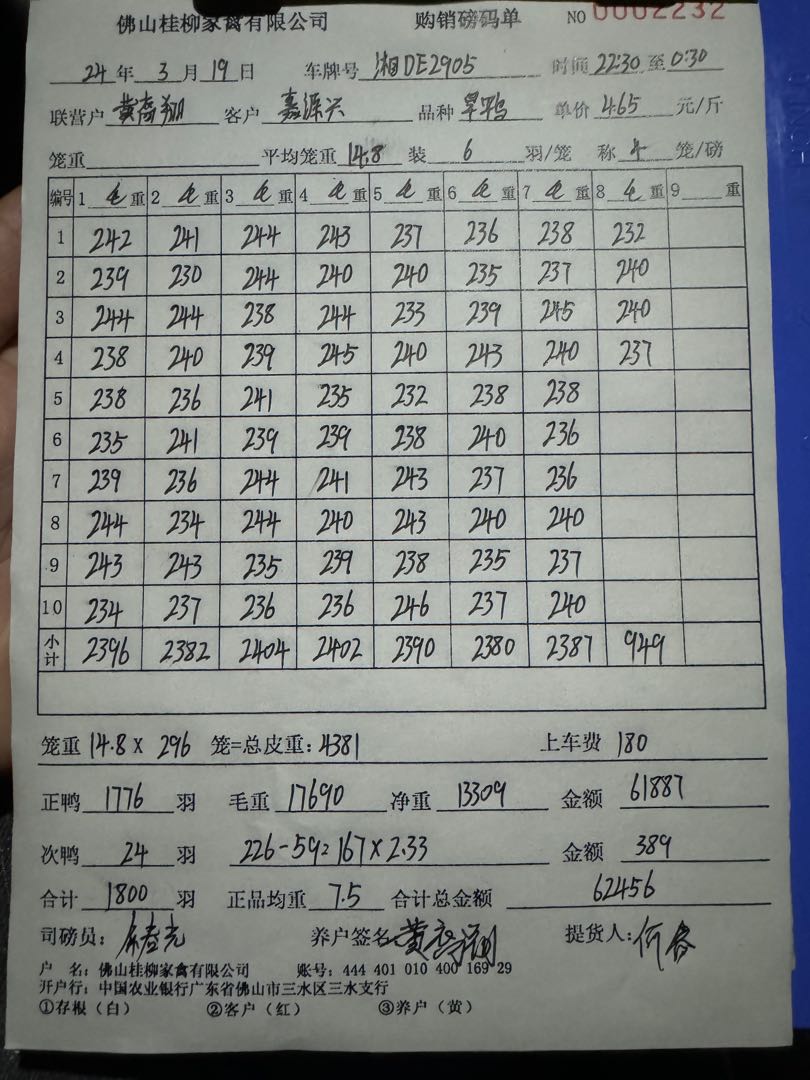 佛山桂柳家禽有限公司 购销磅码单 NO 0002232
24 年 3 月 19 日 车牌号 湘DE2905 时间 22:30 至 0:30
联营户 黄高翔 客户 嘉源兴 品种 旱鸭 单价 4.65 元/斤
笼重 平均笼重 14.8 装 6 羽/笼 称 4 笼/磅
编号 1 毛 重 2 毛 重 3 毛 重 4 毛 重 5 毛 重 6 毛 重 7 毛 重 8 毛 重 9 重
1 242 241 244 243 237 236 238 232
2 239 230 244 240 240 235 237 240
3 244 244 238 244 233 239 245 240
4 238 240 239 245 240 243 240 237
5 238 236 241 235 232 238 238
6 235 241 239 239 238 240 236
7 239 236 244 241 243 237 236
8 244 234 244 240 243 240 240
9 243 243 235 239 238 235 237
10 234 237 236 236 246 237 240
小计 2396 2382 2404 2402 2390 2380 2387 949
笼重 14.8 X 296 笼=总皮重: 4381 上车费 180
正鸭 1776 羽 毛重 17690 净重 13309 金额 61887
次鸭 24 羽 226-59=167×2.33 金额 389
合计 1800 羽 正品均重 7.5 合计总金额 62456
司磅员: 养户签名 黄高翔 提货人: 何春
户 名: 佛山桂柳家禽有限公司 账号: 444 401 010 400 169 29
开户行: 中国农业银行广东省佛山市三水区三水支行
①存根(白) ②客户(红) ③养户(黄)